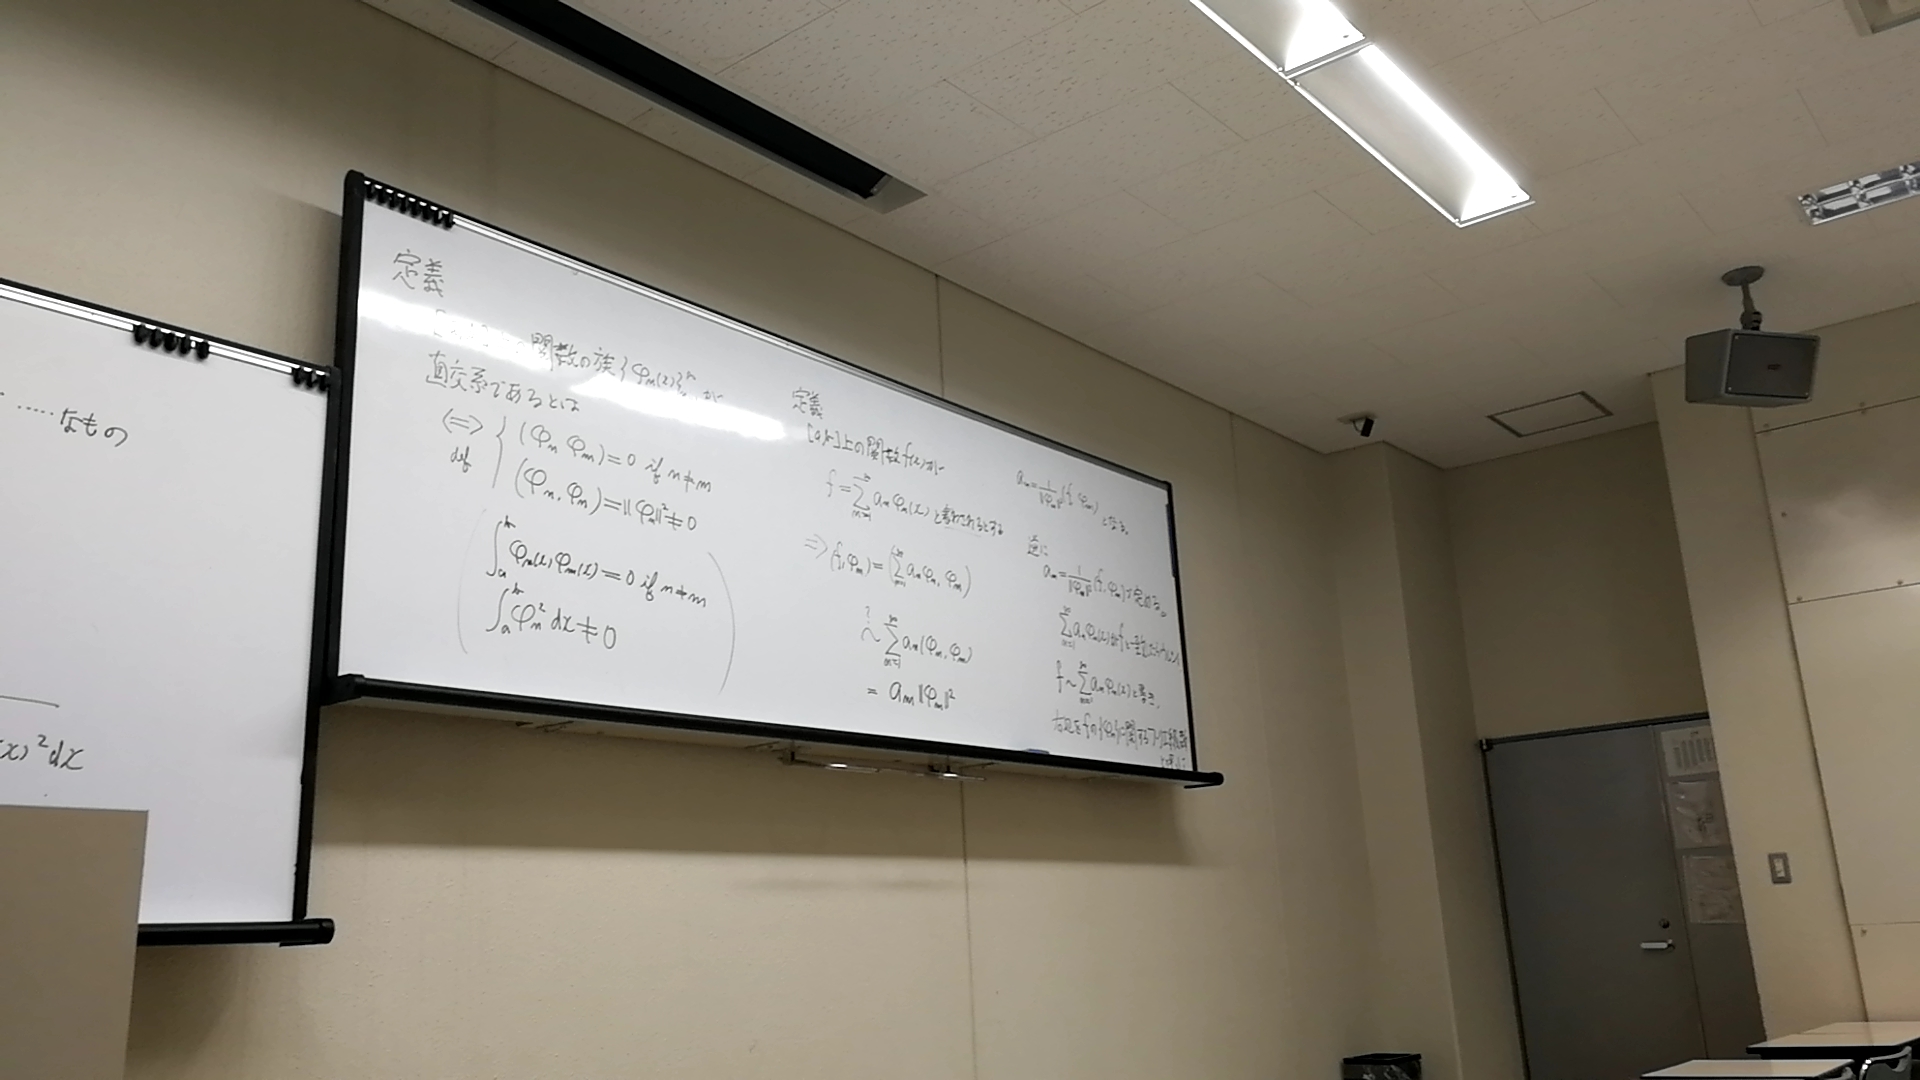 ……なもの
x)²dx
定義
関数の族{φn(x)} が
直交系であるとは
⟺ def { (φn φm)=0 if n≠m
(φn, φn)=||φn||²≠0
∫ₐᵇ φn(x)φm(x)=0 if n≠m
∫ₐᵇ φn² dx≠0
定義
[a,b]上の関数f(x)が
f=∑ₙ₌₁^∞ anφn(x) と表わされるとする
⇒(f,φm)=(∑ₙ₌₁^∞ anφn, φm)
?∼ ∑ₙ₌₁^∞ an(φn, φm)
= am||φm||²
am=1/||φm||²(f, φm) となる。
逆に
am=1/||φm||²(f, φm)で定める。
∑ₙ₌₁^∞ anφn(x)がfに一致
f∼∑ₙ₌₁^∞ anφn(x)と書き,
右辺をfの{φn}に関するフーリエ級数